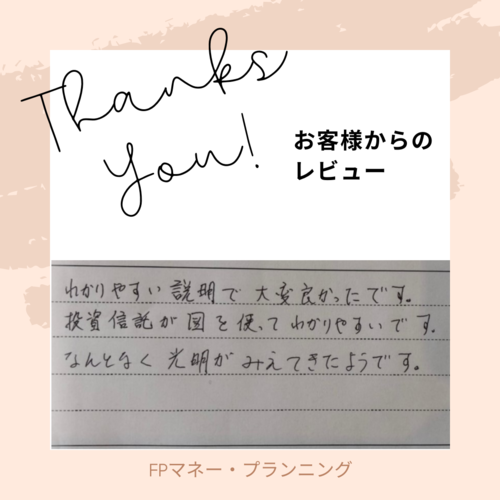 Thanks
You!
お客様からの
レビュー
わかりやすい説明で大変良かったです。
投資信託が図を使ってわかりやすいです.
なんとなく光明がみえてきたようです。
FPマネー・プランニング